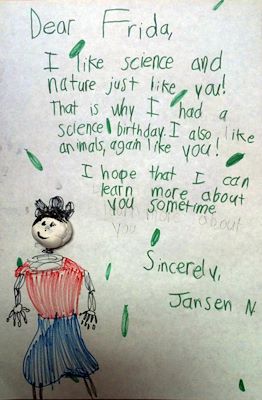 Dear Frida,
I like science and
nature just like you!
That is why I had a
science birthday. I also like
animals, again like you!
I hope that I can
learn more about
you sometime
about
you
Sincerely,
Jansen N